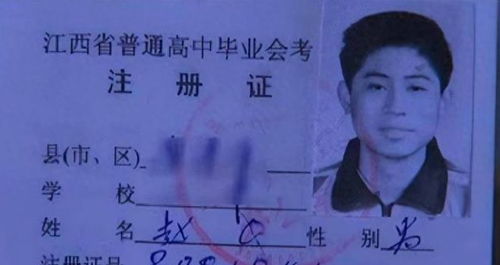 江西省普通高中毕业会考
注 册 证
县(市、区)
学 校
姓 名 赵 性 别 男
注册证号